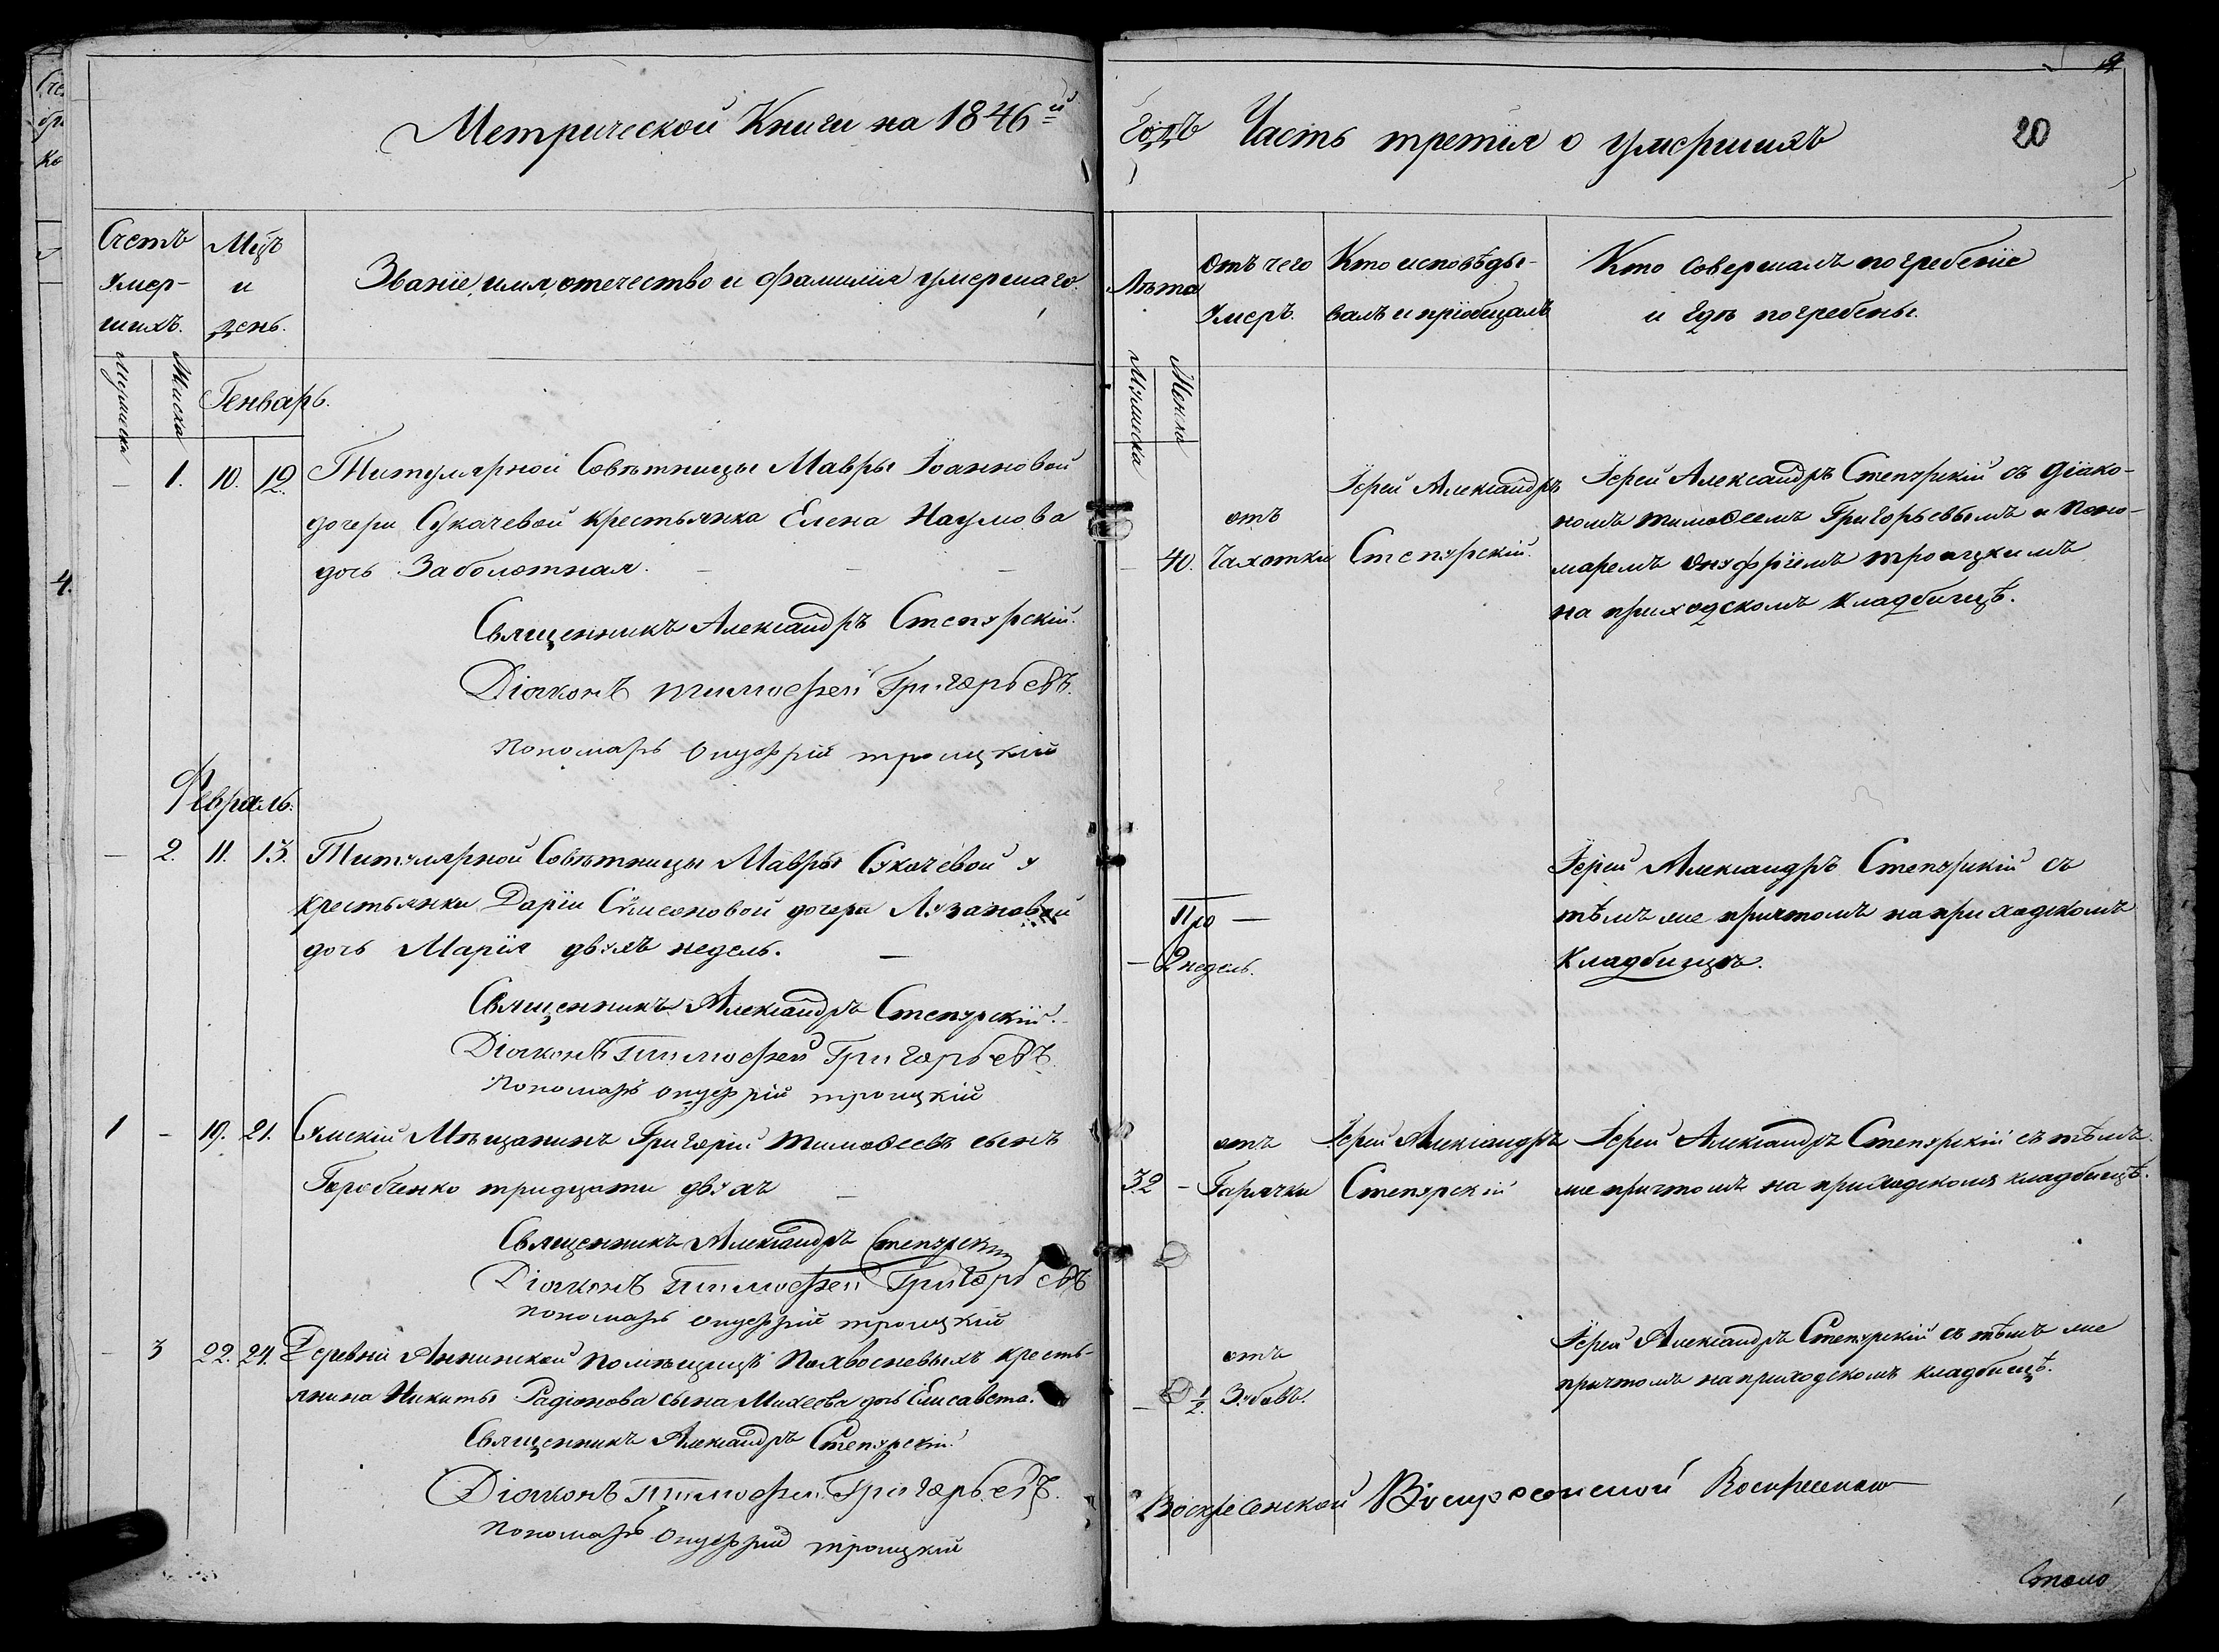 Метрической Книги на 1846й
годъ Часть третія о умершихъ
20
Счетъ умер-шихъ.
Мцъ и день.
Званіе, имя, отечество и фамилія умершаго.
Лѣта
Отъ чего умеръ.
Кто исповѣды-валъ и пріобщалъ
Кто совершалъ погребеніе
и гдѣ погребены.
Мужеска
Женска
Мужеска
Женска
Генварь.
– 1. 10. 12.
Титулярной Совѣтницы Мавры Іоанновой
дочери Сукачевой крестьянка Елена Наумова
дочь Заболотная.
Священникъ Александръ Степурскій.
Діаконъ Тимофей Григорьевъ.
Пономарь Онуфрій Троицкій
40.
отъ
Чахотки
Іерей Александръ
Степурскій.
Іерей Александръ Степурскій съ Діако-
номъ Тимоѳеемъ Григорьевымъ и Поно-
маремъ Онуфріемъ Троицкимъ
на приходскомъ кладбищѣ.
Февраль.
– 2. 11. 13.
Титулярной Совѣтницы Мавры Сукачевой у
крестьянки Даріи Сѵмеоновой дочери Лузановой
дочь Марія двухъ недель.
Священникъ Александръ Степурскій.
Діаконъ Тимофей Григорьевъ.
Пономарь Онуфрій Троицкій
– 2 недель.
Іерей Александръ Степурскій съ
тѣмъ же причтомъ на приходскомъ
кладбищѣ.
1 – 19. 21.
Сумскій Мѣщанинъ Григорій Тимоѳеевъ сынъ
Горобченко тридцати двухъ
Священникъ Александръ Степурскій
Діаконъ Тимофей Григорьевъ
Пономарь Онуфрій Троицкій
32 –
отъ
Горячки
Іерей Александръ
Степурскій
Іерей Александръ Степурскій съ тѣмъ
же причтомъ на приходскомъ кладбищѣ.
– 3 22. 24.
Деревни Аннинской помѣщицъ Похвосневыхъ кресть-
янина Никиты Радіонова сына Михеева дочь Елисавета.
Священникъ Александръ Степурскій.
Діаконъ Тимофей Григорьевъ.
Пономарь Онуфрій Троицкій
– 1/2.
отъ
Зубовъ.
Іерей Александръ Степурскій съ тѣмъ же
причтомъ на приходскомъ кладбищѣ.
Воскресенской Воскресенской
4.